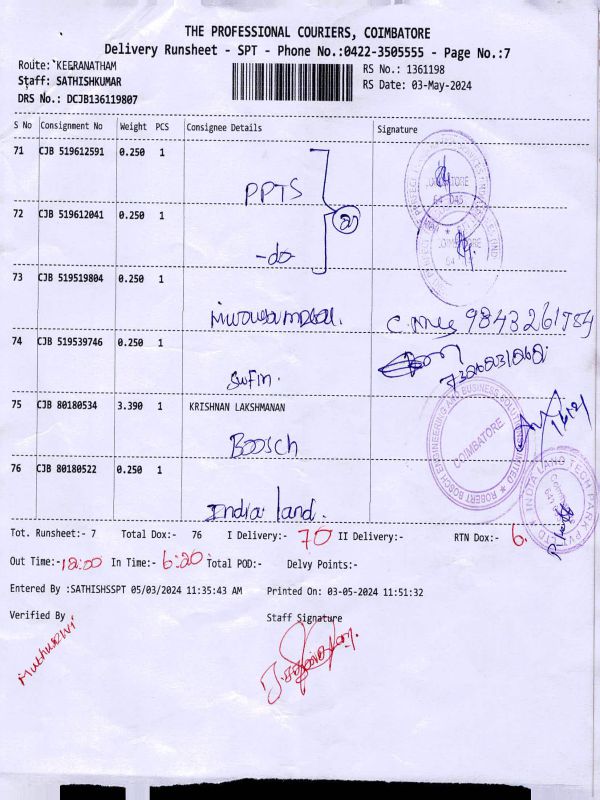 THE PROFESSIONAL COURIERS, COIMBATORE
Delivery Runsheet - SPT - Phone No.:0422-3505555 - Page No.:7
Route: KEERANATHAM
RS No.: 1361198
Staff: SATHISHKUMAR
RS Date: 03-May-2024
DRS No.: DCJB136119807
S No Consignment No Weight PCS Consignee Details Signature
71 CJB 519612591 0.250 1
PPTS
COIMBATORE
72 CJB 519612041 0.250 1
-do-
COIMBATORE
73 CJB 519519804 0.250 1
74 CJB 519539746 0.250 1
75 CJB 80180534 3.390 1 KRISHNAN LAKSHMANAN
Boosch
ROBERT BOSCH ENGINEERING AND BUSINESS SOLUTIONS LIMITED
COIMBATORE
76 CJB 80180522 0.250 1
India land.
INDIA LAND TECH PARK PVT LTD
Tot. Runsheet:- 7 Total Dox:- 76 I Delivery:- 70 II Delivery:- RTN Dox:- 6.
Out Time:- 12:00 In Time:- 6:20 Total POD:- Delvy Points:-
Entered By :SATHISHSSPT 05/03/2024 11:35:43 AM Printed On: 03-05-2024 11:51:32
Verified By Staff Signature